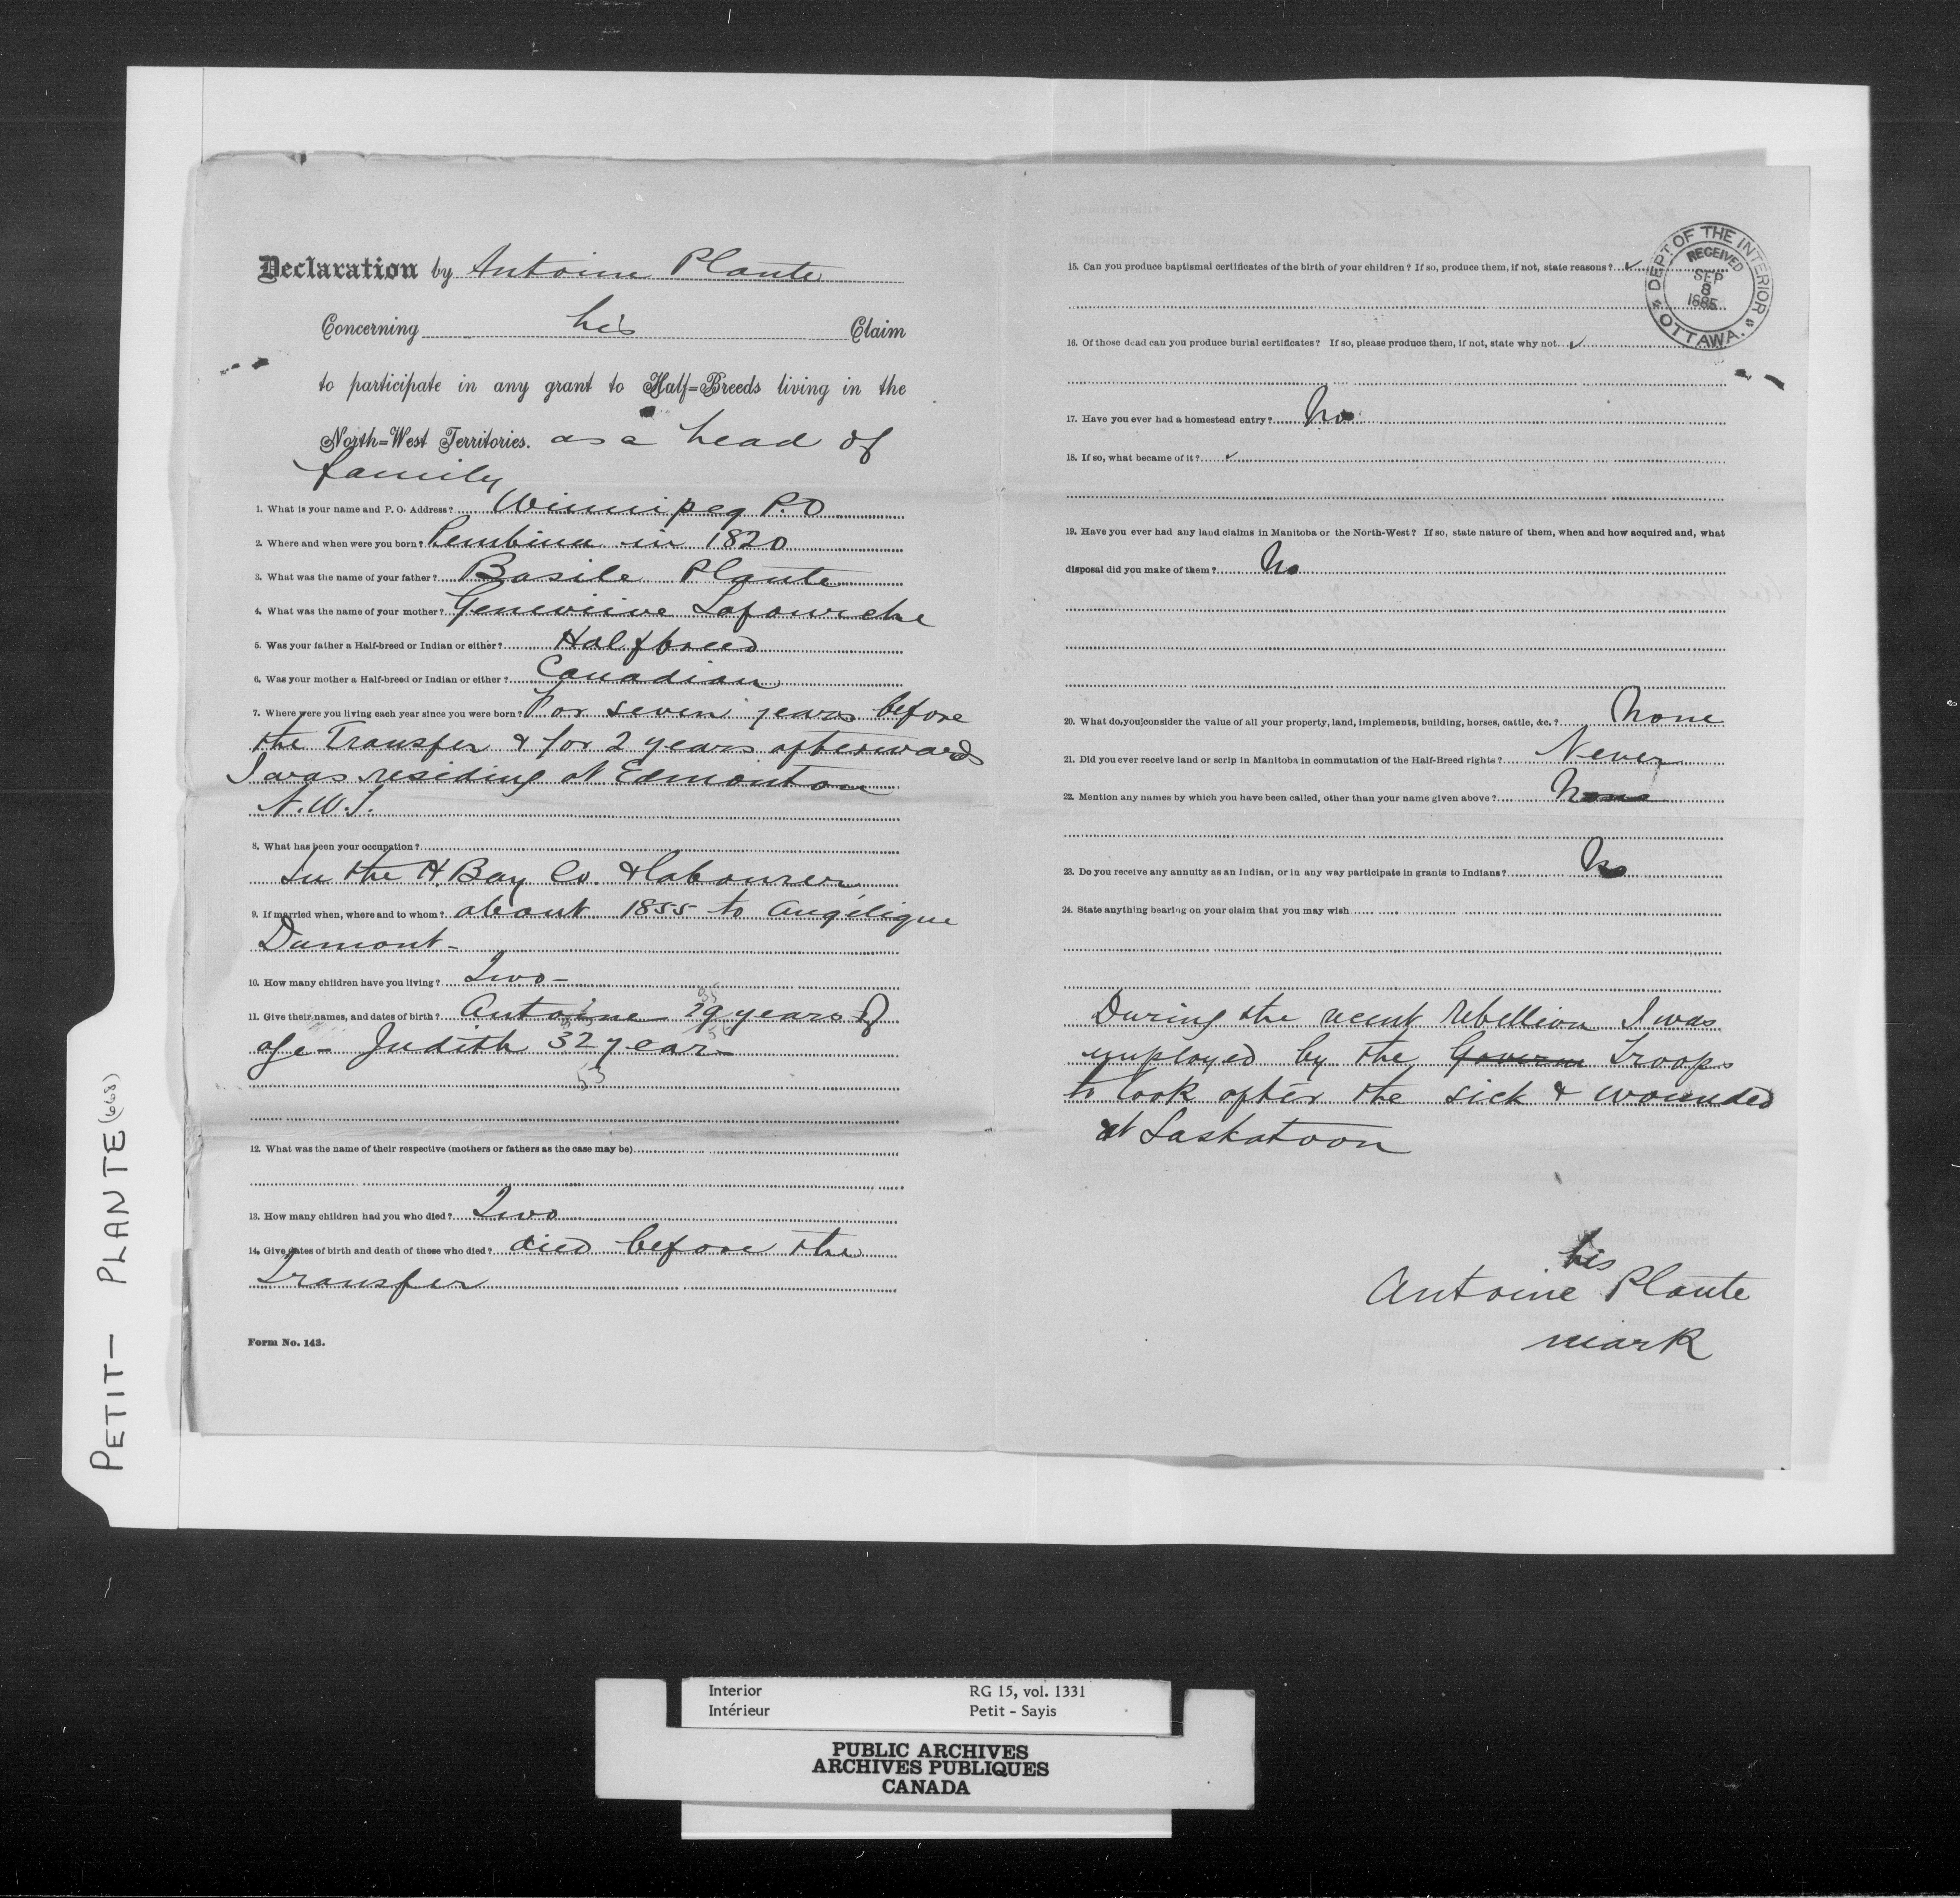 Declaration by Antoine Plante
Concerning his Claim
to participate in any grant to Half=Breeds living in the
North=West Territories. as a head of
family
1. What is your name and P. O. Address? Winnipeg P.O
2. Where and when were you born? Pembina in 1820
3. What was the name of your father? Basile Plante
4. What was the name of your mother? Geneviive Lafourche
5. Was your father a Half-breed or Indian or either? Halfbreed
6. Was your mother a Half-breed or Indian or either? Canadian
7. Where were you living each year since you were born? For seven years before
the Transfer & for 2 years afterwards
I was residing at Edmonton
N.W.T.
8. What has been your occupation?
In the H. Bay Co. & labourer
9. If married when, where and to whom? about 1855 to Angélique
Dumont-
10. How many children have you living? Two-
11. Give their names, and dates of birth? Antoine 29 years of
age- Judith 32 year-
53
12. What was the name of their respective (mothers or fathers as the case may be)
13. How many children had you who died? Two
14. Give dates of birth and death of those who died? died before the
Transfer
Form No. 143.
15. Can you produce baptismal certificates of the birth of your children? If so, produce them, if not, state reasons? ✓
DEPT. OF THE INTERIOR
RECEIVED
SEP
8
1885
OTTAWA.
16. Of those dead can you produce burial certificates? If so, please produce them, if not, state why not. ✓
17. Have you ever had a homestead entry? No
18. If so, what became of it? ✓
19. Have you ever had any land claims in Manitoba or the North-West? If so, state nature of them, when and how acquired and, what
disposal did you make of them? No
20. What do you consider the value of all your property, land, implements, building, horses, cattle, &c.? None
21. Did you ever receive land or scrip in Manitoba in commutation of the Half-Breed rights? Never
22. Mention any names by which you have been called, other than your name given above? None
23. Do you receive any annuity as an Indian, or in any way participate in grants to Indians? No
24. State anything bearing on your claim that you may wish
During the recent rebellion I was
employed by the Govern Troops
to look after the sick & wounded
at Saskatoon
his
Antoine Plante
mark
PETIT - PLANTE (668)
Interior RG 15, vol. 1331
Intérieur Petit - Sayis
PUBLIC ARCHIVES
ARCHIVES PUBLIQUES
CANADA